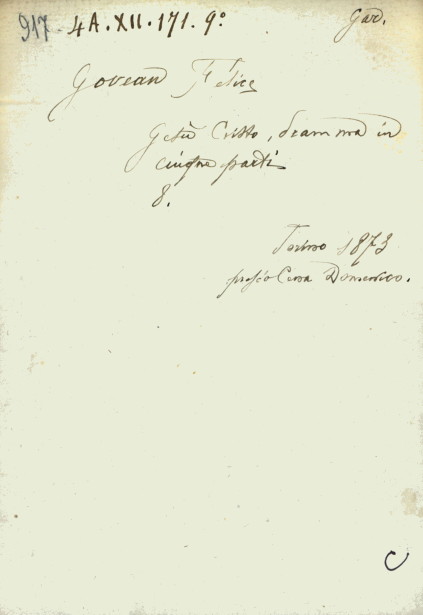 917 4A.XII.171.9° Gar.
Govean Felice
Gesù Cristo, dramma in
cinque parti
8.
Torino 1873
presso Cena Domenico.
C